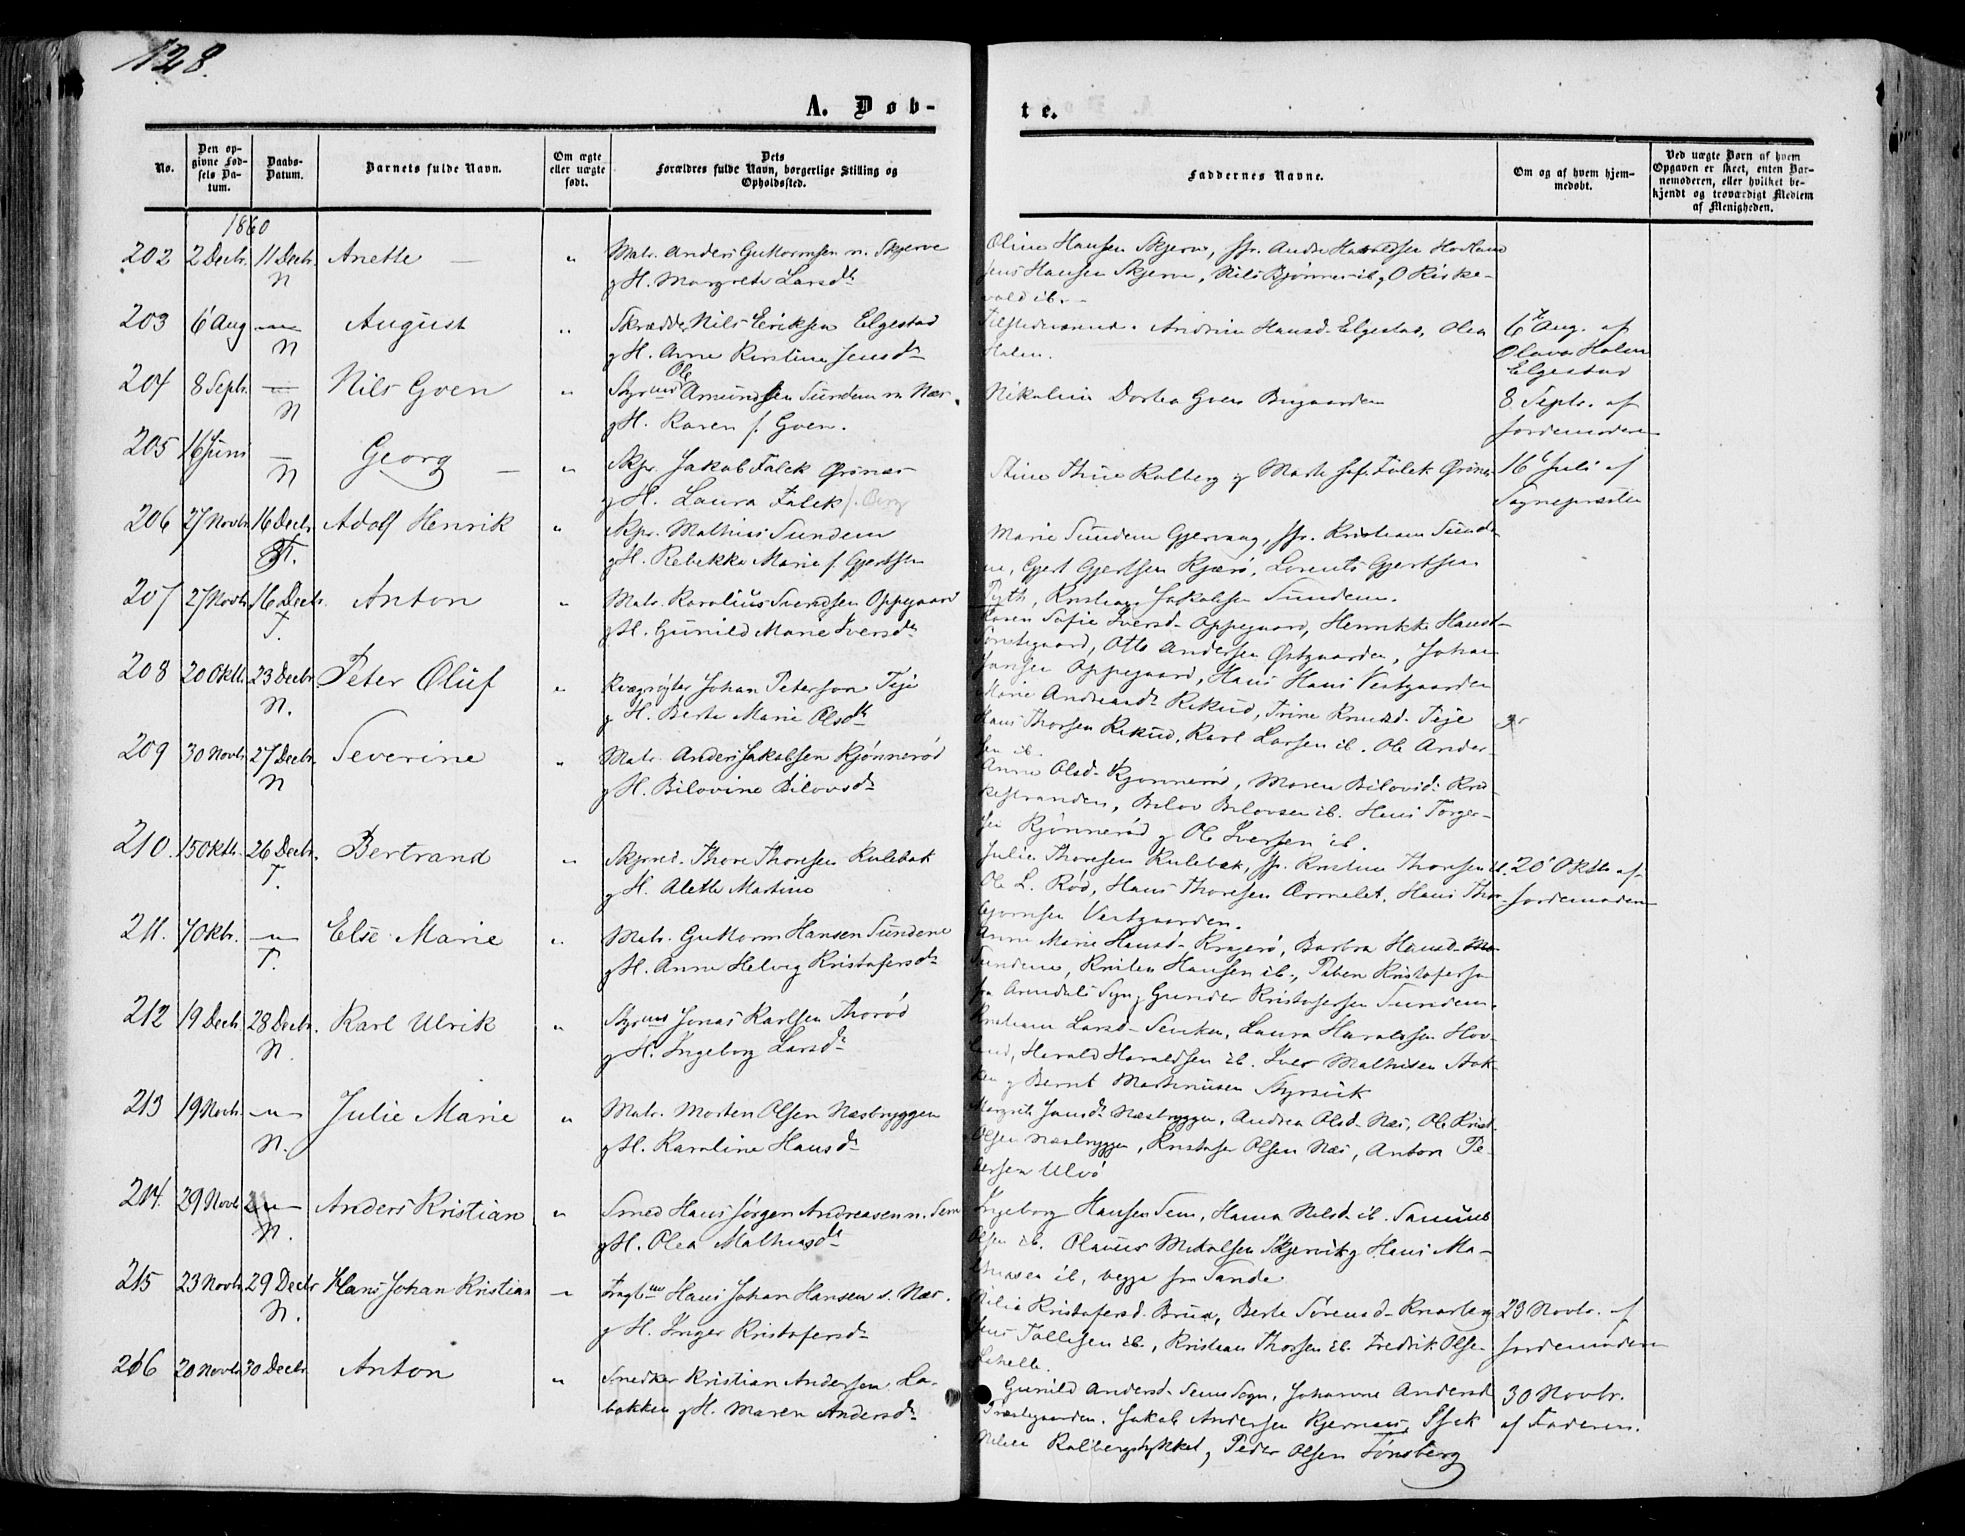 128.
A. Døb-
te.
No.
Den op-
givne Fød-
sels Da-
tum.
Daabs-
Datum.
Barnets fulde Navn.
Om ægte
eller uægte
født.
Dets
Forældres fulde Navn, borgerlige Stilling og
Opholdssted.
Faddernes Navne.
Om og af hvem hjem-
medøbt.
Ved uægte Børn af hvem
Opgaven er skeet, enten Bar-
nemoderen, eller hvilket be-
kjendt og troværdigt Medlem
af Menigheden.
1860
202 2 Decbr. 11 Decbr. N Anette — " Matr. Anders Guttormsen n. Skjerve
g H. Margrete Larsdt
Oline Hansen Skjerve, Jfr. Andrea Haraldsen Hovland
Jens Hansen Skjerve, Nils Bjønnes ib, O Riske-
vold ib.
203 6 Aug — N August " Skrædder Nils Eriksen Elgestad
g H. Anne Kirstine Jensdt
Tilstedeværende. Andrine Hansd. Elgestad, Olea
Holm.
6 Aug. af
Olava Holm
Elgestad
204 8 Septr. — N Nils Goen " Styrmd Ole Amundsen Sundem n. Nær.
g H. Karen f. Goen.
Nikoline Dortea Goen Bugaarden
8 Septr. af
Jordemoderen
205 16 Juni — N Georg — " Skpr. Jakob Falck Ørsnes
g H. Laura Falck f. Berg
Stine Thue Kalberg g Marte Sofie Falck Ørsnes
16 Juli af
Sognepresten
206 27 Novbr 16 Decbr. T. Adolf Henrik " Skpr. Mathias Sundem
g H. Rebekka Marie f. Gjertsen
Marie Sundem Gjervaag, Jfr. Kristiane Sunde-
ne, Gjert Gjertsen Kjærø, Lorents Gjertsen
Kristian Jakobsen Sundem.
207 27 Novbr 16 Decbr. T. Anton " Matr. Karolius Svendsen Oppegaard
g H. Gunild Marie Iversdt
Karen Sofie Iversd. Oppegaard, Henrikke Hansd.
Otto Andersen Østgaarden, Johan
Jansen Oppegaard, Hans Hans Vestgaarden
208 20 Oktb. 23 Decbr N. Peter Oluf " Kvægrøgter Johan Peterson Teje
g H. Berte Marie Olsdt
Marie Andreasdt Rekud, Trine Knudsd. Teje
Hans Thorsen Rekud, Karl Larsen ib. Ole Ander-
sen ib.
209 30 Novbr. 27 Decbr. N Severine " Matr. Anders Jakobsen Kjønnerød
g H. Bilovine Bilovsdt
Anne Olsd. Kjønnerød, Maren Bilovsd.
Bilov Bilovsen ib. Hans Torger-
sen Kjønnerød g Ole Iversen ib.
210. 15 Oktb. 26 Decbr. T. Bertrand " Skprd. Thore Thoresen Rulebak
g H. Alette Martine
Julie Thoresen Rulebak, Jfr. Kristine Thoresen ib.
Ole L. Rød, Hans Thoresen Ormelet. Hans Thor-
bjørnsen Vestgaarden.
20 Oktb af
Jordemoderen
211. 7 Oktr. — T. Else Marie " Matr. Guttorm Hansen Sundene
g H. Anne Helvig Kristofersdt
Anne Marie Hansd. Kragerø, Barbra Hansd.
Sundene, Kristen Hansen ib., Peben Kristofersen
fra Arendals Sgn, Gunder Kristofersen Sundem.
212 19 Decb. 28 Decbr. N. Karl Ulrik " Styrmd Jonas Karlsen Thorød
g H. Ingeborg Larsdt
Kristiane Larsd. Laura Haraldsen Hov-
land, Harald Haraldsen ib. Iver Mathisen
g Bernt Martinusen Styrsvik
213 19 Novbr. — N. Julie Marie " Matr. Morten Olsen Næsbryggen
g H. Karoline Hansdt
Margrete Jansdt Næsbryggen, Andrea Olsd. Næs, Ole Krist.
Olsen Næsbryggen, Kristofer Olsen Næs, Anton Pe-
dersen Ulvø
214. 29 Novbr — N. Anders Kristian " Smed Hans Jørgen Andreasen n. Sem
g H. Olea Mathiasdt
Ingeborg Hansen Sem, Hanna Nilsd. ib. Samuel
Olsen ib. Olaus Mikalsen Skjervik g Hans Ma-
thiasen ib, begge fra Sande
215 23 Novbr. 29 Decbr N. Hans Johan Kristian " Hans Johan Hansen n. Nær.
g H. Inger Kristofersdt
Nilia Kristofersd. Brua, Berte Sørensd. Knarberg
Jens Tollefsen ib., Kristian Thorsen ib. Fredrik Olsen
23 Novbr. af
Jordemoderen
216 20 Novbr 30 Decbr. Anton " Snedker Kristian Andersen La-
bakken g H. Maren Andersdt
Gunild Andersd. Sems Sogn, Johanne Andersd
Præstegaarden. Jakob Andersen Kjernæs
Kalbergstykket, Peder Olsen Tønsberg
30 Novbr.
af Faderen.